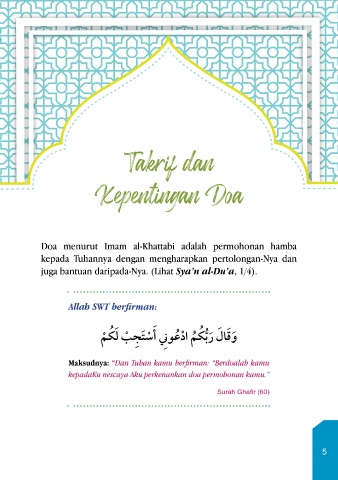 Takrif dan
Kepentingan Doa
Doa menurut Imam al-Khattabi adalah permohonan hamba
kepada Tuhannya dengan mengharapkan pertolongan-Nya dan
juga bantuan daripada-Nya. (Lihat Sya’n al-Du’a, 1/4).
Allah SWT berfirman:
وَقَالَ رَبُّكُمُ ادْعُونِي أَسْتَجِبْ لَكُمْ
Maksudnya: “Dan Tuhan kamu berfirman: “Berdoalah kamu
kepadaKu nescaya Aku perkenankan doa permohonan kamu.”
Surah Ghafir (60)
5